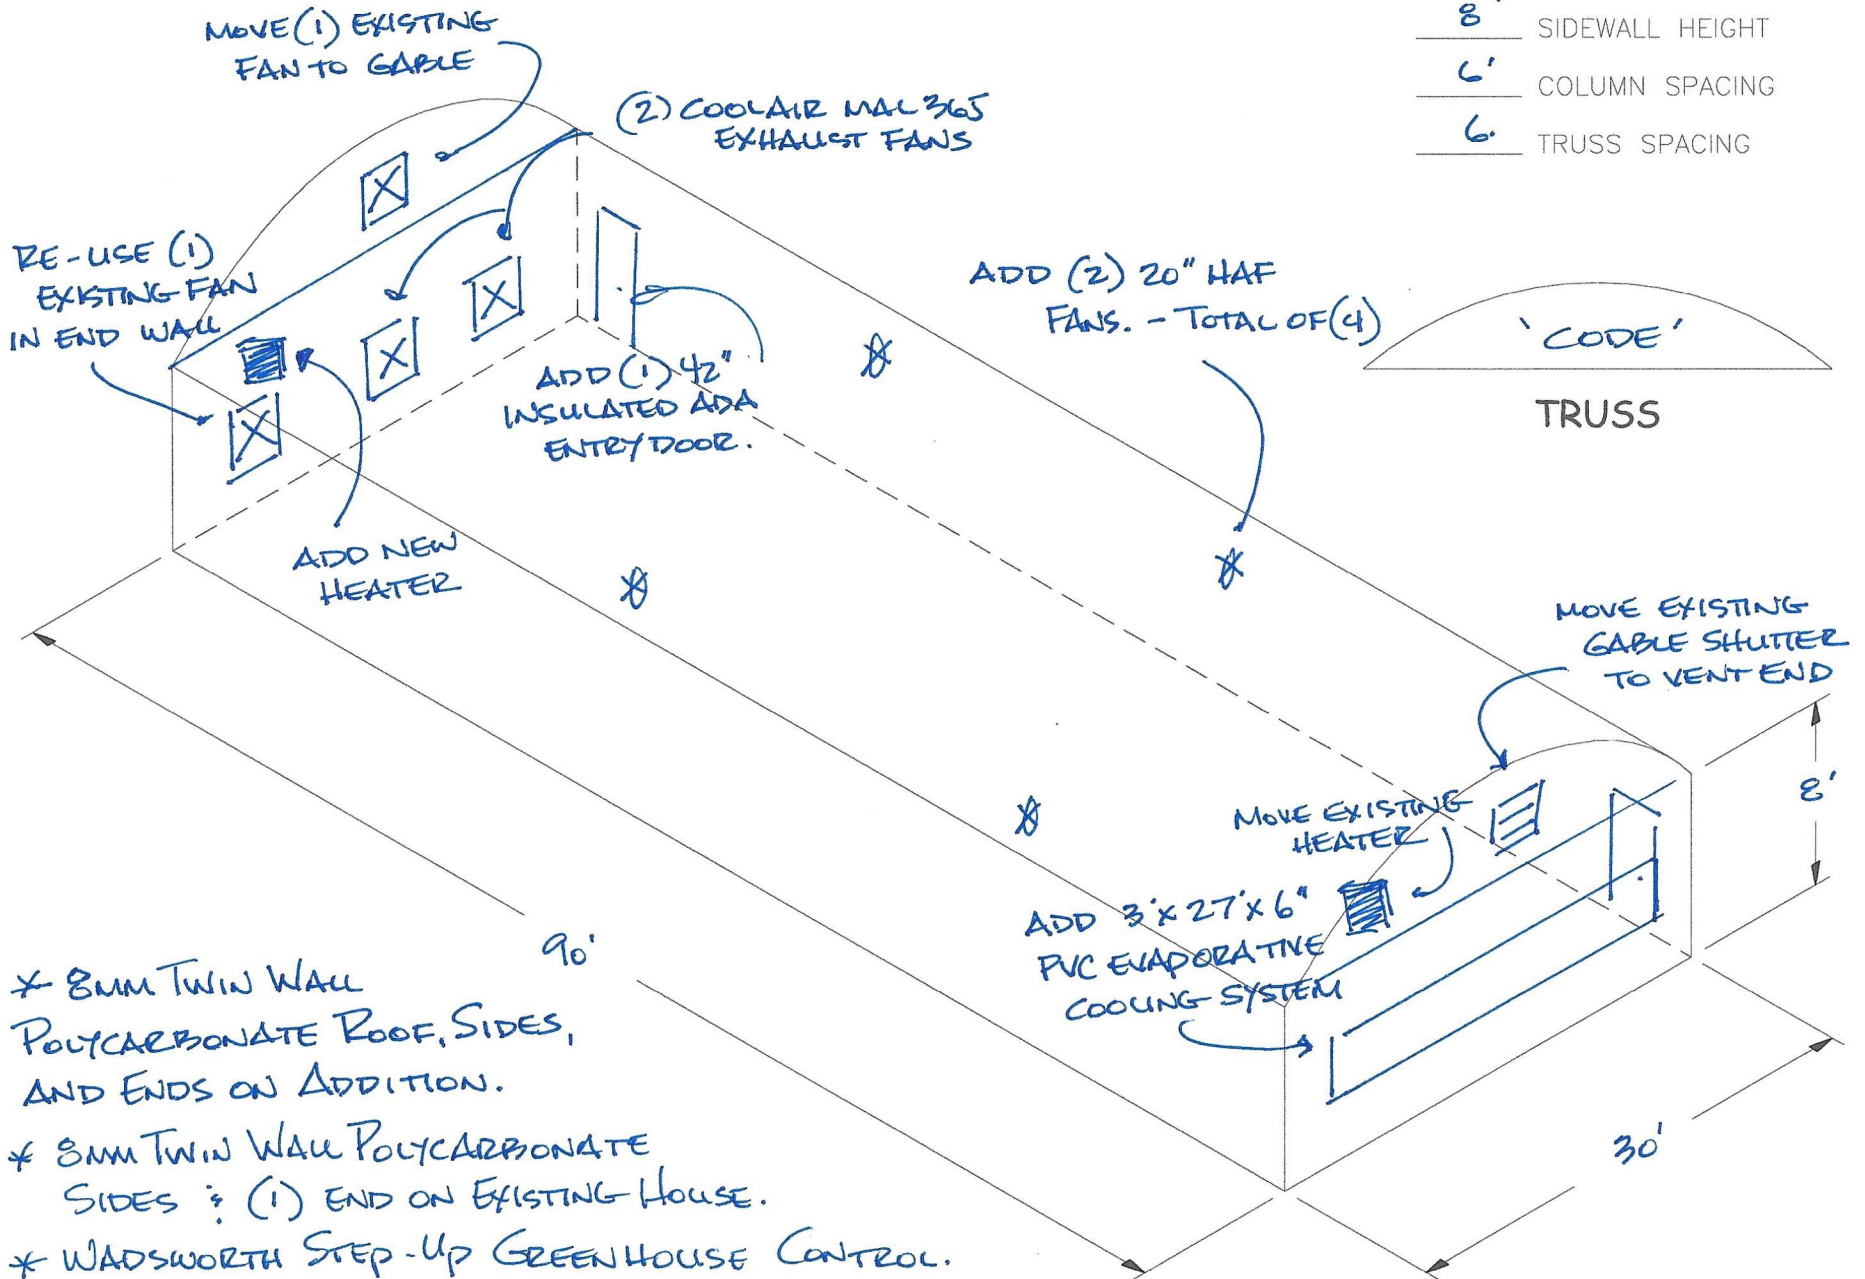 MOVE (1) EXISTING
FAN TO GABLE
8' SIDEWALL HEIGHT
6' COLUMN SPACING
6' TRUSS SPACING
(2) COOLAIR MAL 365
EXHAUST FANS
RE-USE (1)
EXISTING FAN
IN END WALL
ADD (2) 20" HAF
FANS. - TOTAL OF (4)
'CODE'
TRUSS
ADD (1) 42"
INSULATED ADA
ENTRY DOOR.
ADD NEW
HEATER
MOVE EXISTING
GABLE SHUTTER
TO VENT END
8'
MOVE EXISTING
HEATER
ADD 3'x27'x6"
PVC EVAPORATIVE
COOLING SYSTEM
90'
30'
* 8MM TWIN WALL
POLYCARBONATE ROOF, SIDES,
AND ENDS ON ADDITION.
* 8MM TWIN WALL POLYCARBONATE
SIDES & (1) END ON EXISTING HOUSE.
* WADSWORTH STEP-UP GREENHOUSE CONTROL.